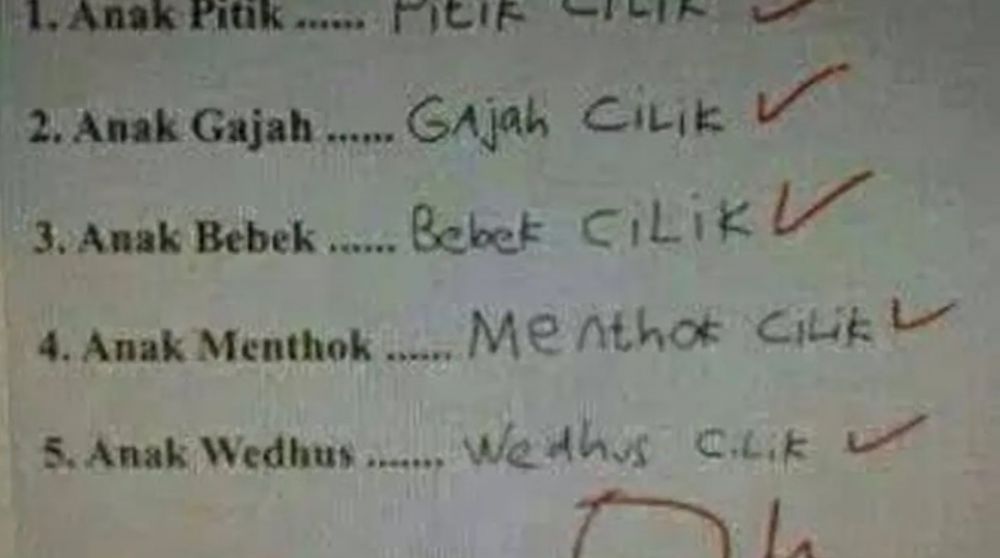 1. Anak Pitik ...... Pitik CILIK
2. Anak Gajah ...... GAjah CiLiK
3. Anak Bebek ...... Bebek CiLiK
4. Anak Menthok ...... Menthok CiLik
5. Anak Wedhus ....... Wedhus CiLiK